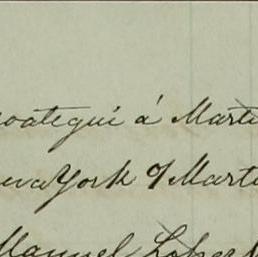 oategui á Marti
eva York % Marti
Manuel Lopez